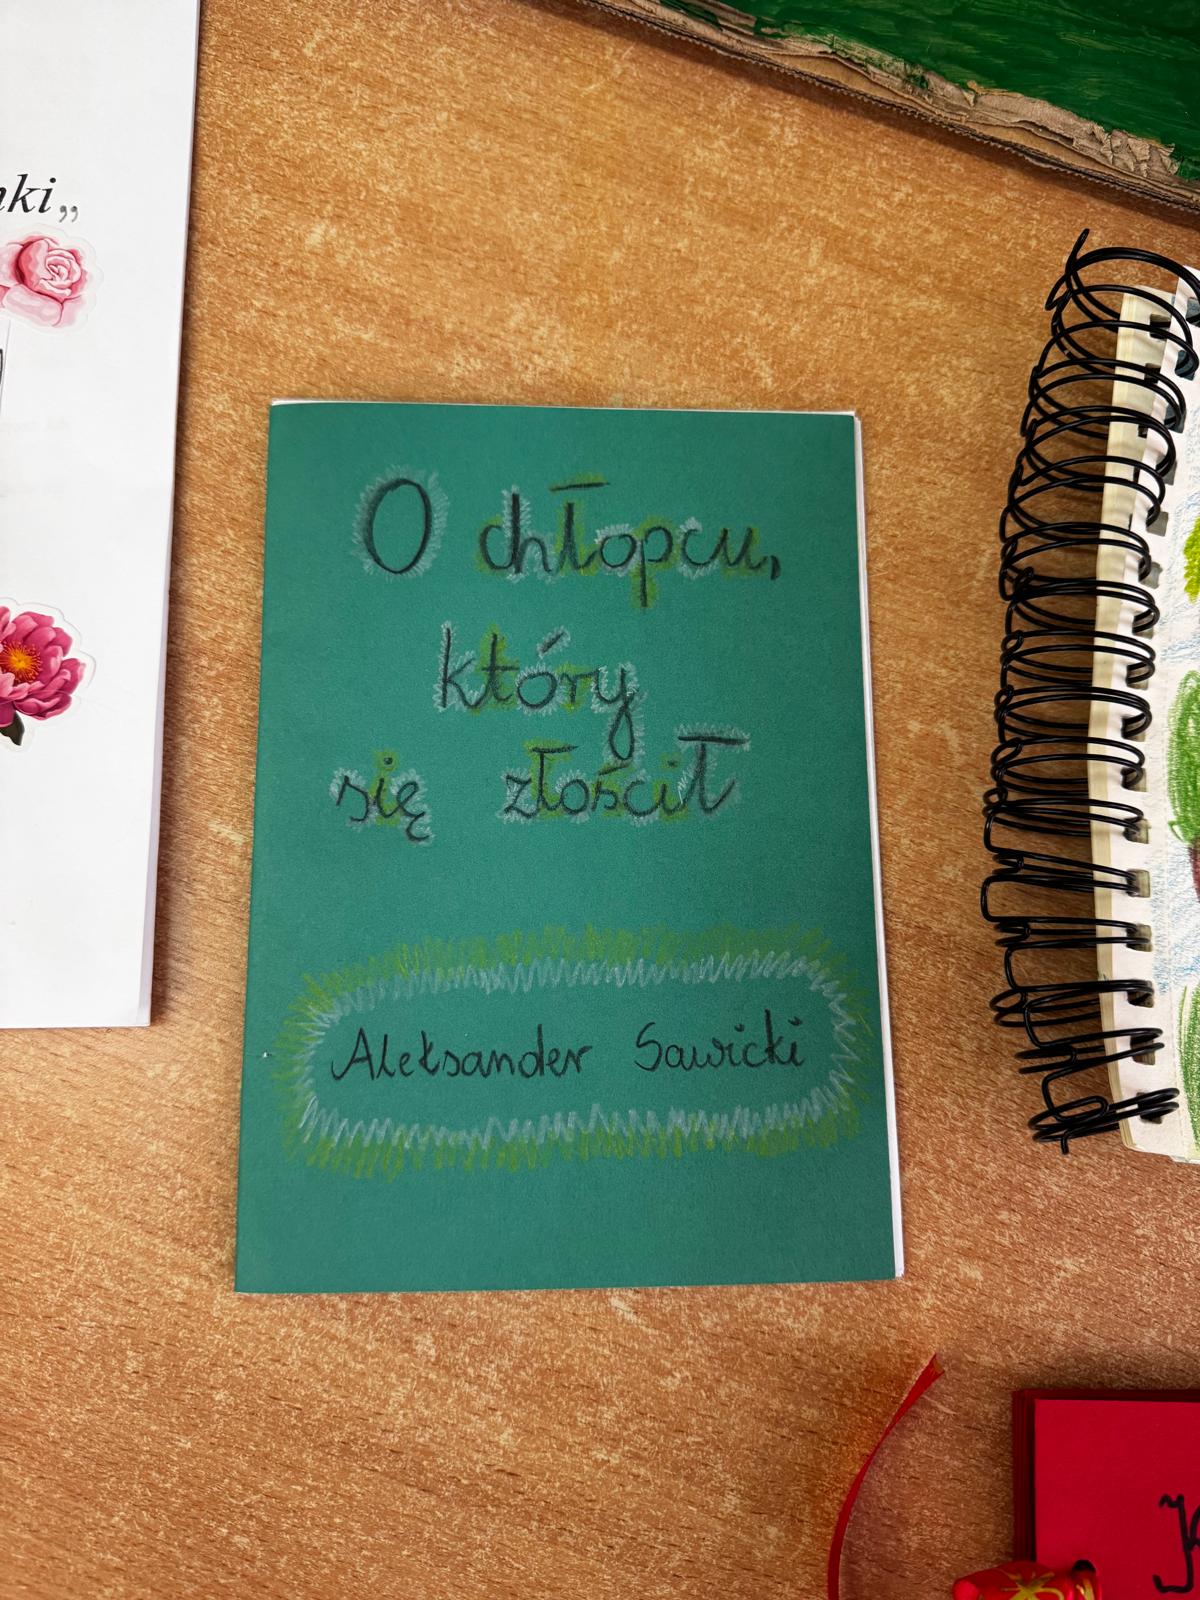 O chłopcu,
który
się złościł
Aleksander Sawicki